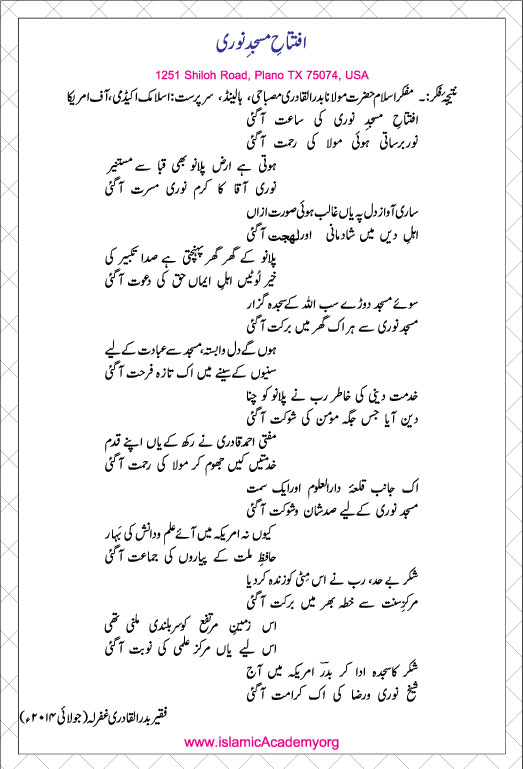 افتتاحِ مسجدِ نوری
1251 Shiloh Road, Plano TX 75074, USA
نتیجۂ فکر:۔ مفکر اسلام حضرت مولانا بدرالقادری مصباحی، ہالینڈ، سرپرست: اسلامک اکیڈمی، آف امریکا
افتتاحِ مسجدِ نوری کی ساعت آگئی
نور برساتی ہوئی مولا کی رحمت آگئی
ہوتی ہے ارضِ پلانو بھی قبا سے مستنیر
نوری آقا کا کرم نوری مسرت آگئی
ساری آوازِ دل پہ یاں غالب ہوئی صورت ازاں
اہلِ دیں میں شادمانی اور لهجت آگئی
پلانو کے گھر گھر پہنچتی ہے صدا تکبیر کی
خیر لُوٹیں اہلِ ایماں حق کی دعوت آگئی
سوئے مسجد دوڑے سب اللہ کے سجدہ گزار
مسجد نوری سے ہر اک گھر میں برکت آگئی
ہوں گے دل وابستہ، مسجد سے عبادت کے لیے
سنیوں کے سینے میں اک تازہ فرحت آگئی
خدمت دینی کی خاطر رب نے پلانو کو چنا
دین آیا جس جگہ مؤمن کی شوکت آگئی
مفتی احمد قادری نے رکھ کے یاں اپنے قدم
خدمتیں کیں جھوم کر مولا کی رحمت آگئی
اک جانب قلعۂ دارالعلوم اور ایک سمت
مسجد نوری کے لیے صد شان و شوکت آگئی
کیوں نہ امریکہ میں آئے علم و دانش کی بَہار
حافظِ ملت کے پیاروں کی جماعت آگئی
شکر بے حد، رب نے اس مِٹی کو زندہ کردیا
مرکزِ سنت سے خطہ بھر میں برکت آگئی
اس زمینِ مرتفع کو سربلندی ملنی تھی
اس لیے یاں مرکز علمی کی نوبت آگئی
شکر کا سجدہ ادا کر بدرؔ امریکہ میں آج
شیخ نوری و رضا کی اک کرامت آگئی
فقیر بدرالقادری غفرلہ (جولائی ۲۰۱۴ء)
www.islamicAcademyorg